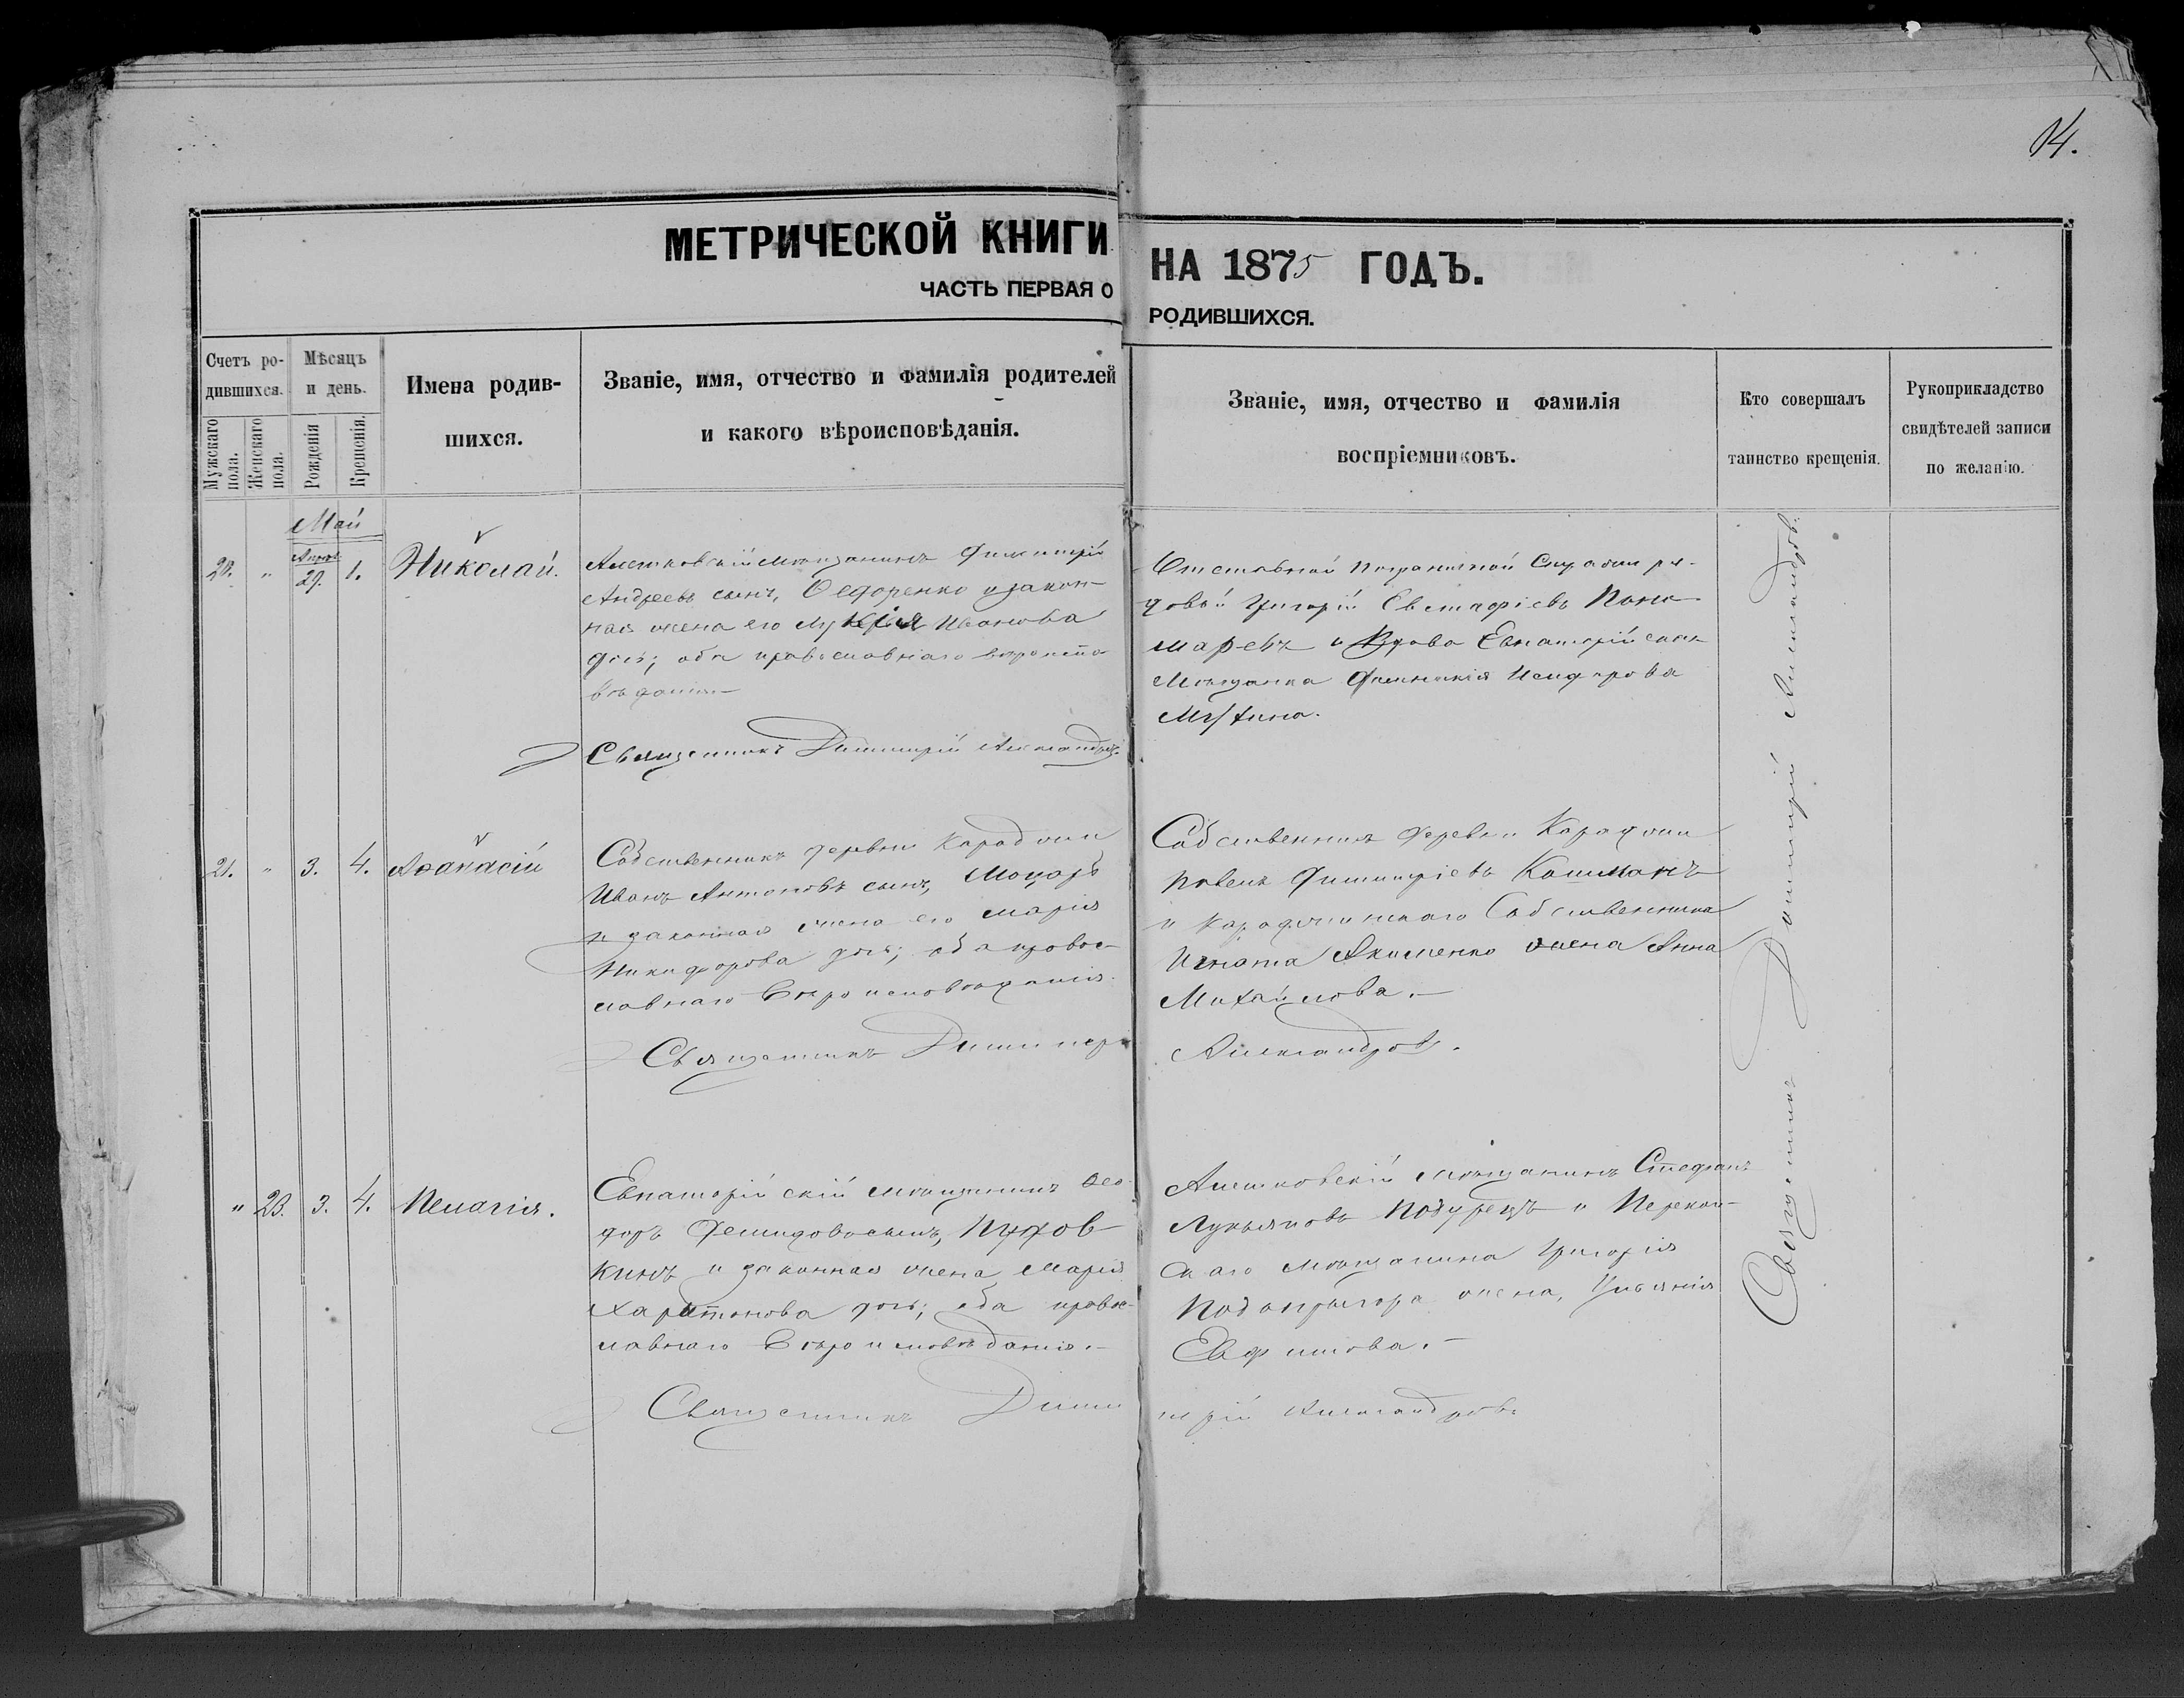 14.
МЕТРИЧЕСКОЙ КНИГИ НА 1875 ГОДЪ.
ЧАСТЬ ПЕРВАЯ О РОДИВШИХСЯ.
Счетъ ро-
дившихся.
Мужескаго пола.
Женскаго пола.
Мѣсяцъ
и день.
Рожденія
Крещенія.
Имена родив-
шихся.
Званіе, имя, отчество и фамилія родителей
и какого вѣроисповѣданія.
Званіе, имя, отчество и фамилія
воспріемниковъ.
Кто совершалъ
таинство крещенія.
Рукоприкладство
свидѣтелей записи
по желанію.
Май
20. " 29. 1. Николай.
Алешковскій мѣщанинъ Димитрій
Андреевъ сынъ, Ѳедоренко и закон-
ная жена его Иванова
дочь; оба православнаго вѣроиспо-
вѣданія.—
Священникъ Димитрій Александровъ.
Отставной пограничной Стражи ря-
довый Григорій Евстафіевъ Поно-
маревъ и Вдова Евпаторійская
Мѣщанка Исидорова
21. " 3. 4. Аѳанасій
Собственникъ деревни
Иванъ Антоновъ сынъ,
и законная жена его Марія
Никифорова дочь; оба правос-
лавнаго Вѣроисповѣданія.
Собственникъ деревни
Павелъ Димитріевъ
и Собственника
Игната Акименко жена Анна
Михайлова.—
Священникъ Димитрій Александровъ.
" 23. 3. 4. Пелагія.
Евпаторійскій мѣщанинъ Ѳео-
доръ Демидовъ сынъ,
и законная жена Марія
Харитонова дочь; оба правос-
лавнаго Вѣроисповѣданія.—
Алешковскій мѣщанинъ Стефанъ
Лукьяновъ и Перекоп-
скаго мѣщанина Григорія
жена, Ульянія
Евфимова.—
Священникъ Димитрій Александровъ.
Священникъ Димитрій Александровъ.